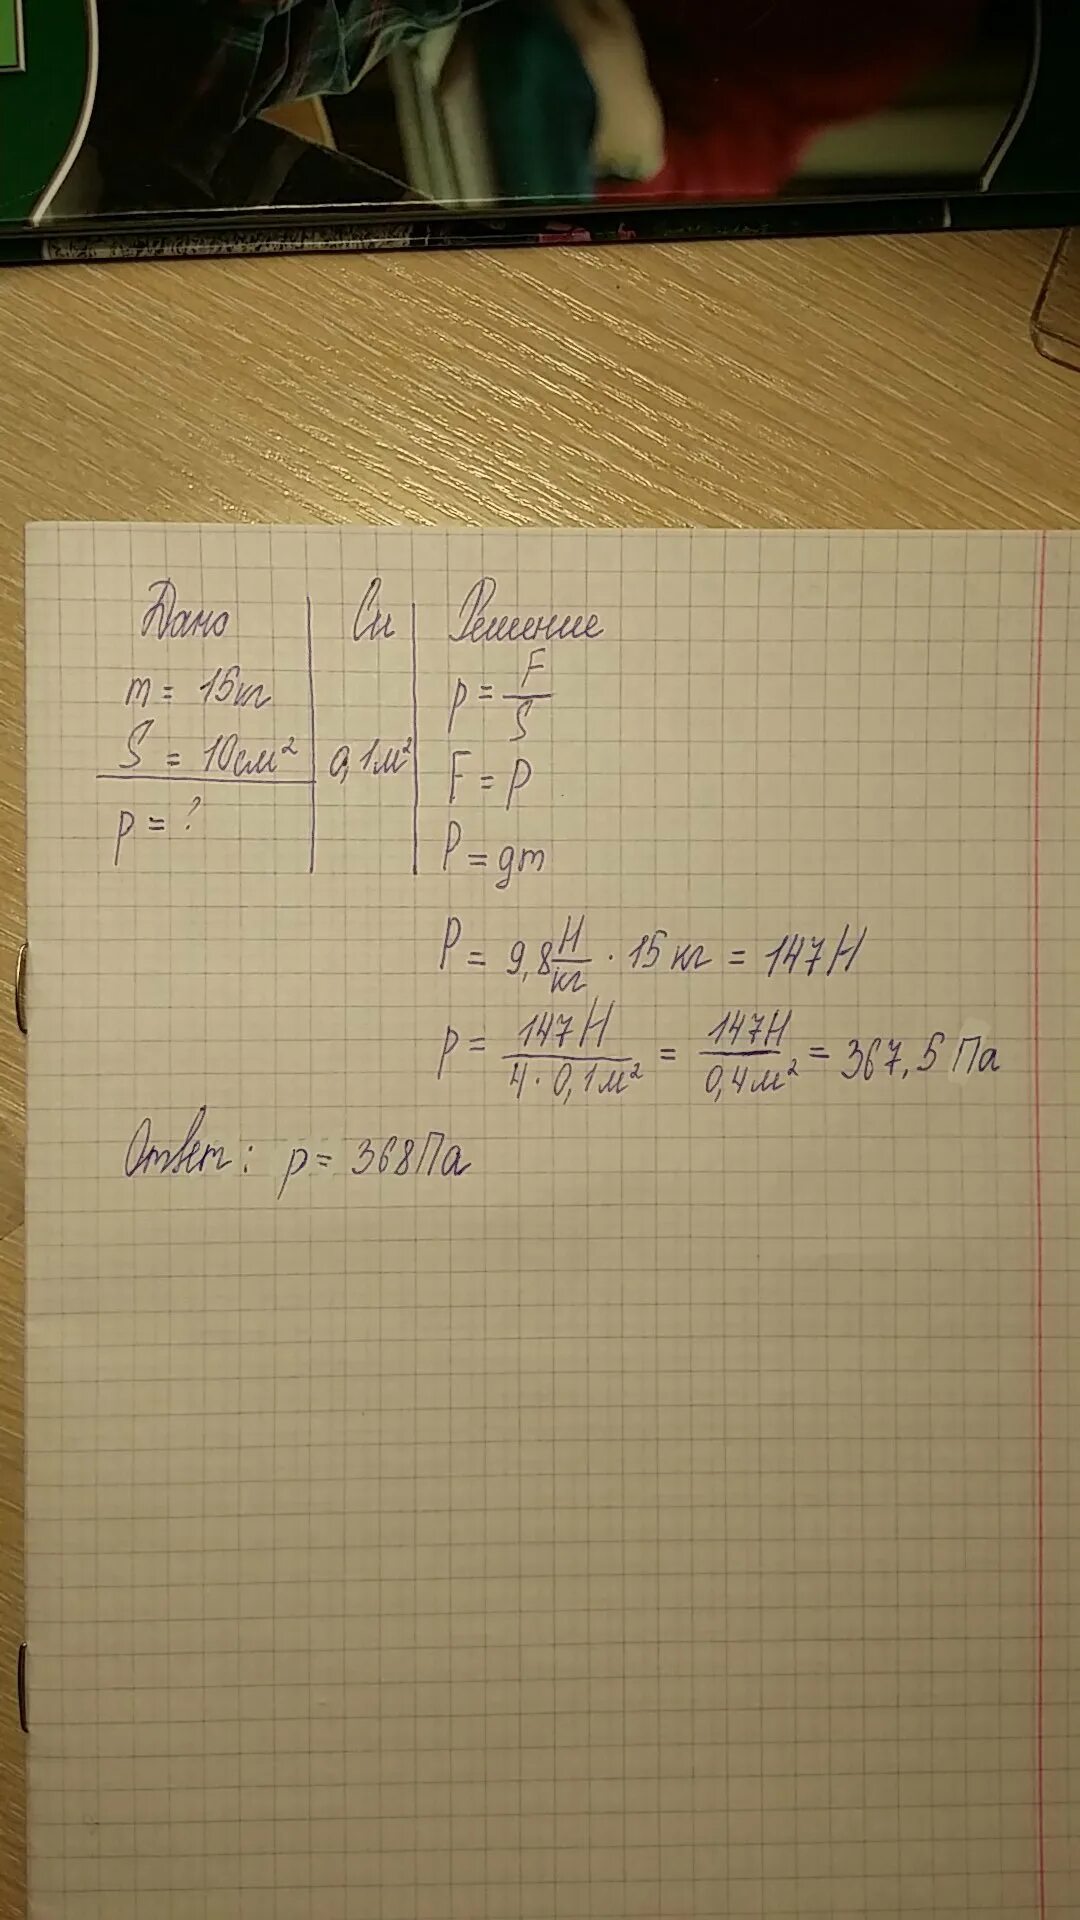 Дано Си Решение
m = 15кг
p = F/S
S = 10см² 0,1м²
F = P
p = ?
P = gm
P = 9,8 Н/кг · 15 кг = 147 Н
p = 147 Н / 4 · 0,1 м² = 147Н / 0,4 м² = 367,5 Па
Ответ: p = 368 Па